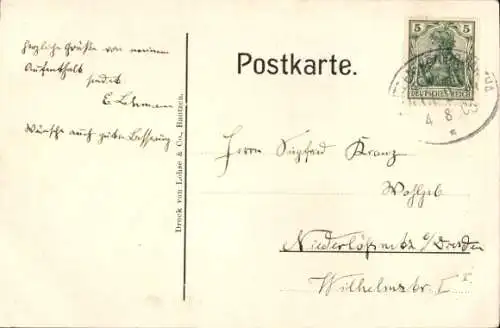 herzliche Grüße von meinem
Aufenthalt
sendet
E. Lehmann
Wünsche auch gute Besserung
Postkarte.
Druck von Lohse & Co., Bautzen.
5 5
DEUTSCHES REICH
4 8
Herrn Siegfried Kranz
Wohlgeb
Niederlößnitz b/Dresden
Wilhelmstr I